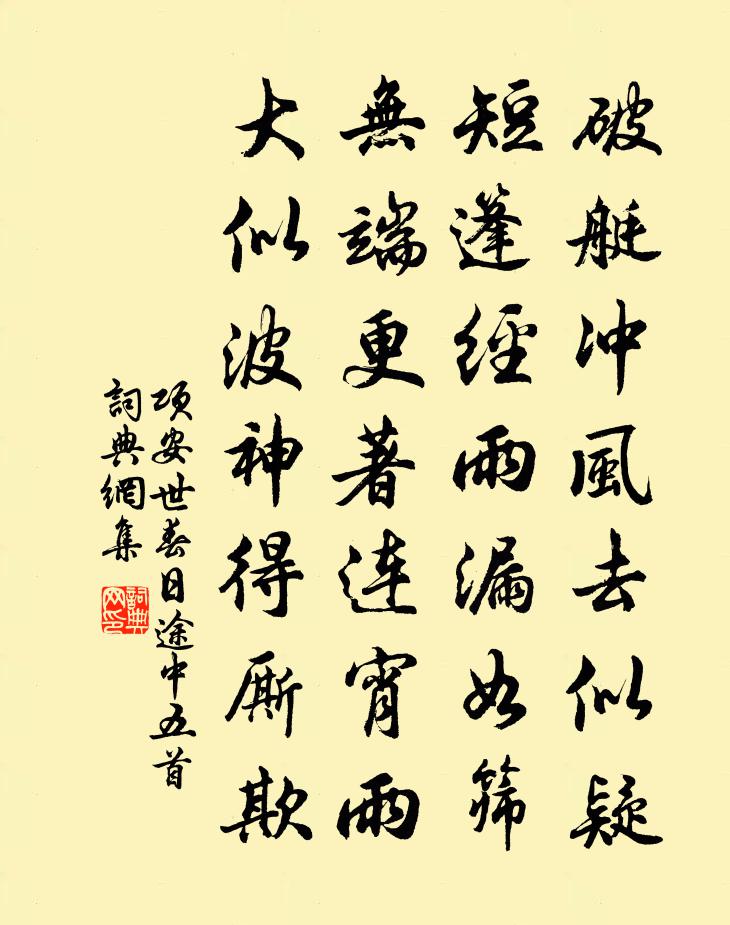 破艇冲風去似疑
短篷經雨漏如篩
無端更著連宵雨
大似波神得厮欺
項安世春日途中五首
詞典網集
詞典网印